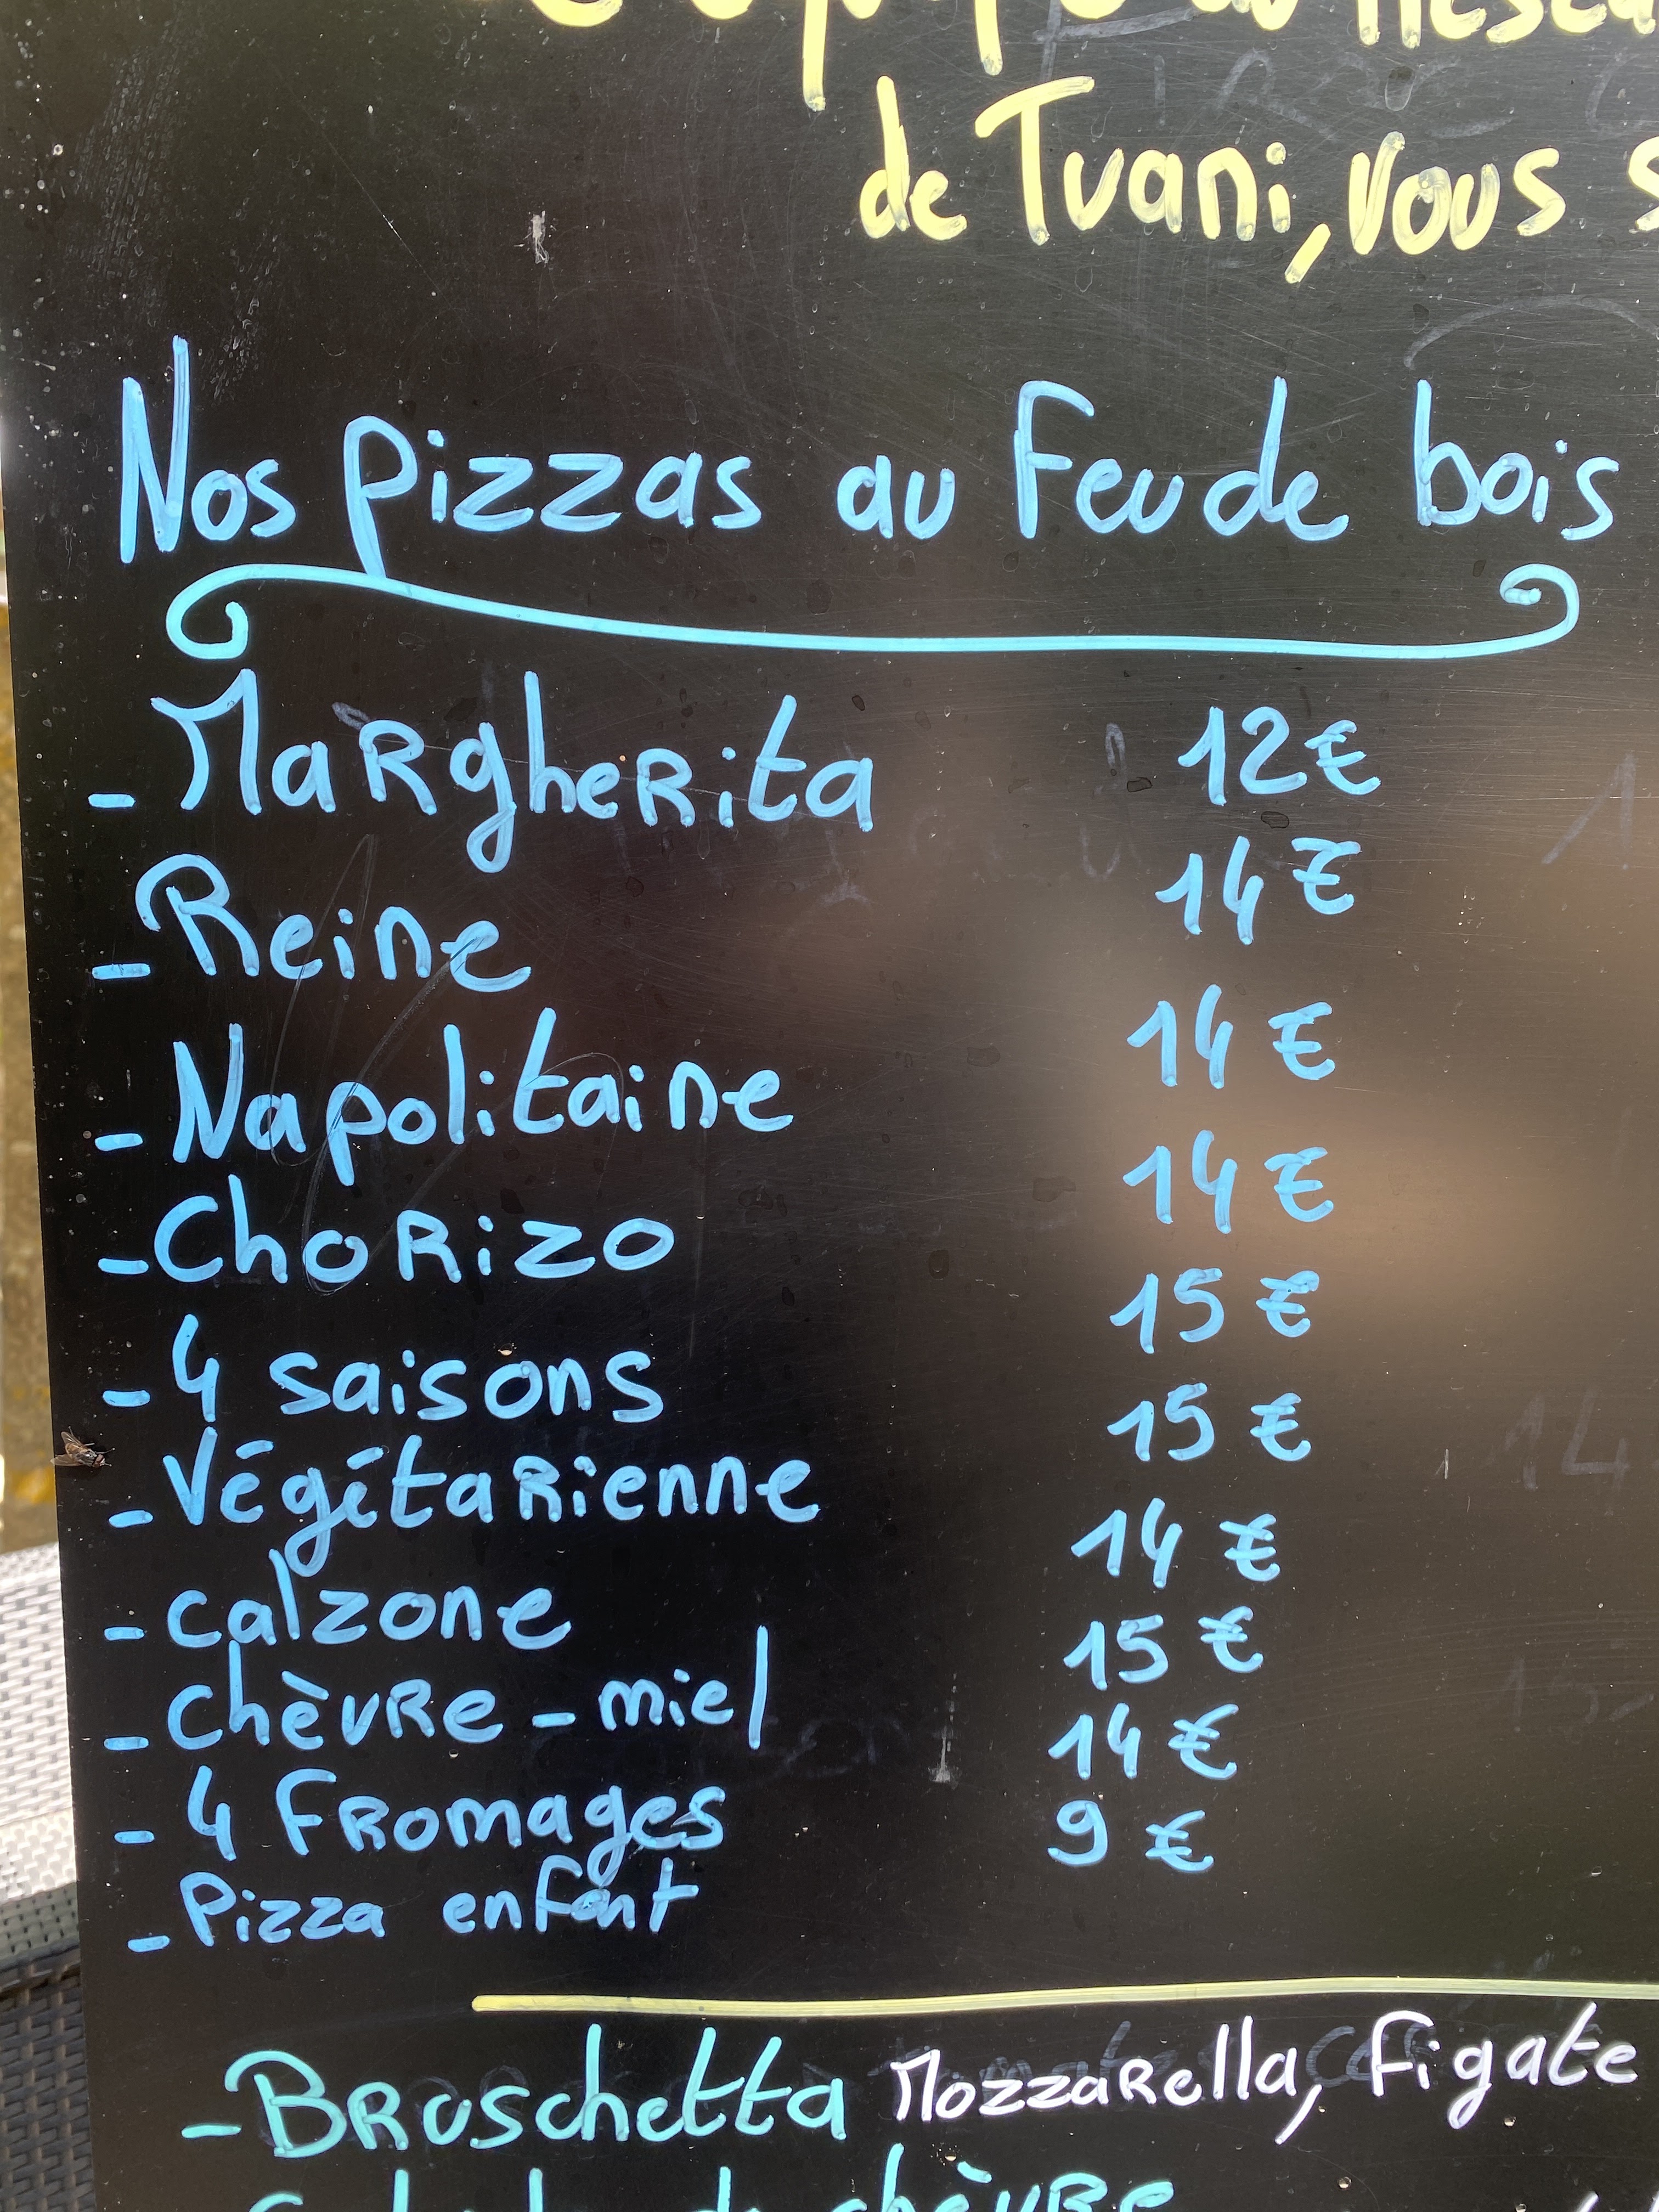 de Tvani, vous
Nos pizzas au feu de bois
- Margherita 12€
- Reine 14€
- Napolitaine 14€
- Chorizo 14€
- 4 saisons 15€
- Végétarienne 15€
- calzone 14€
- chèvre - miel 15€
- 4 fromages 14€
- Pizza enfant 9€
- Bruschetta Mozzarella, figate
chèvre